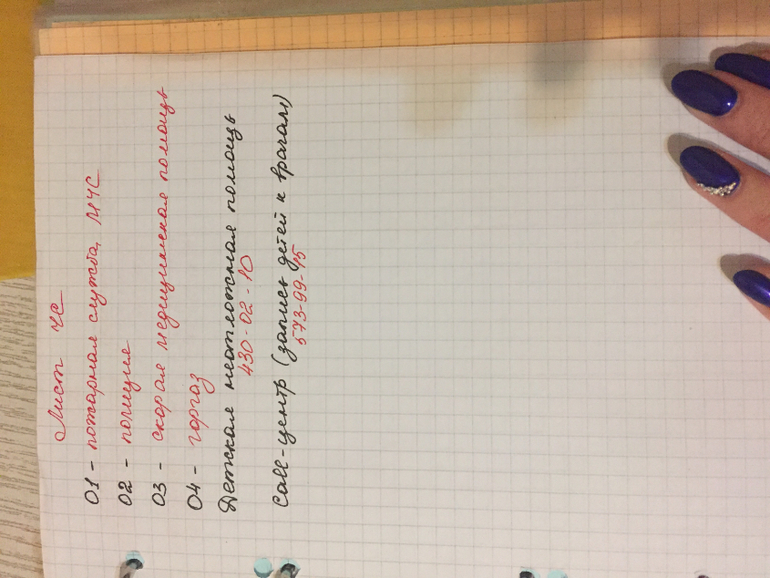 Лист ЧС
01 - пожарная служба, МЧС
02 - полиция
03 - скорая медицинская помощь
04 - горгаз
Детская неотложная помощь
430-02-10
Call-центр (запись детей к врачам)
573-99-15